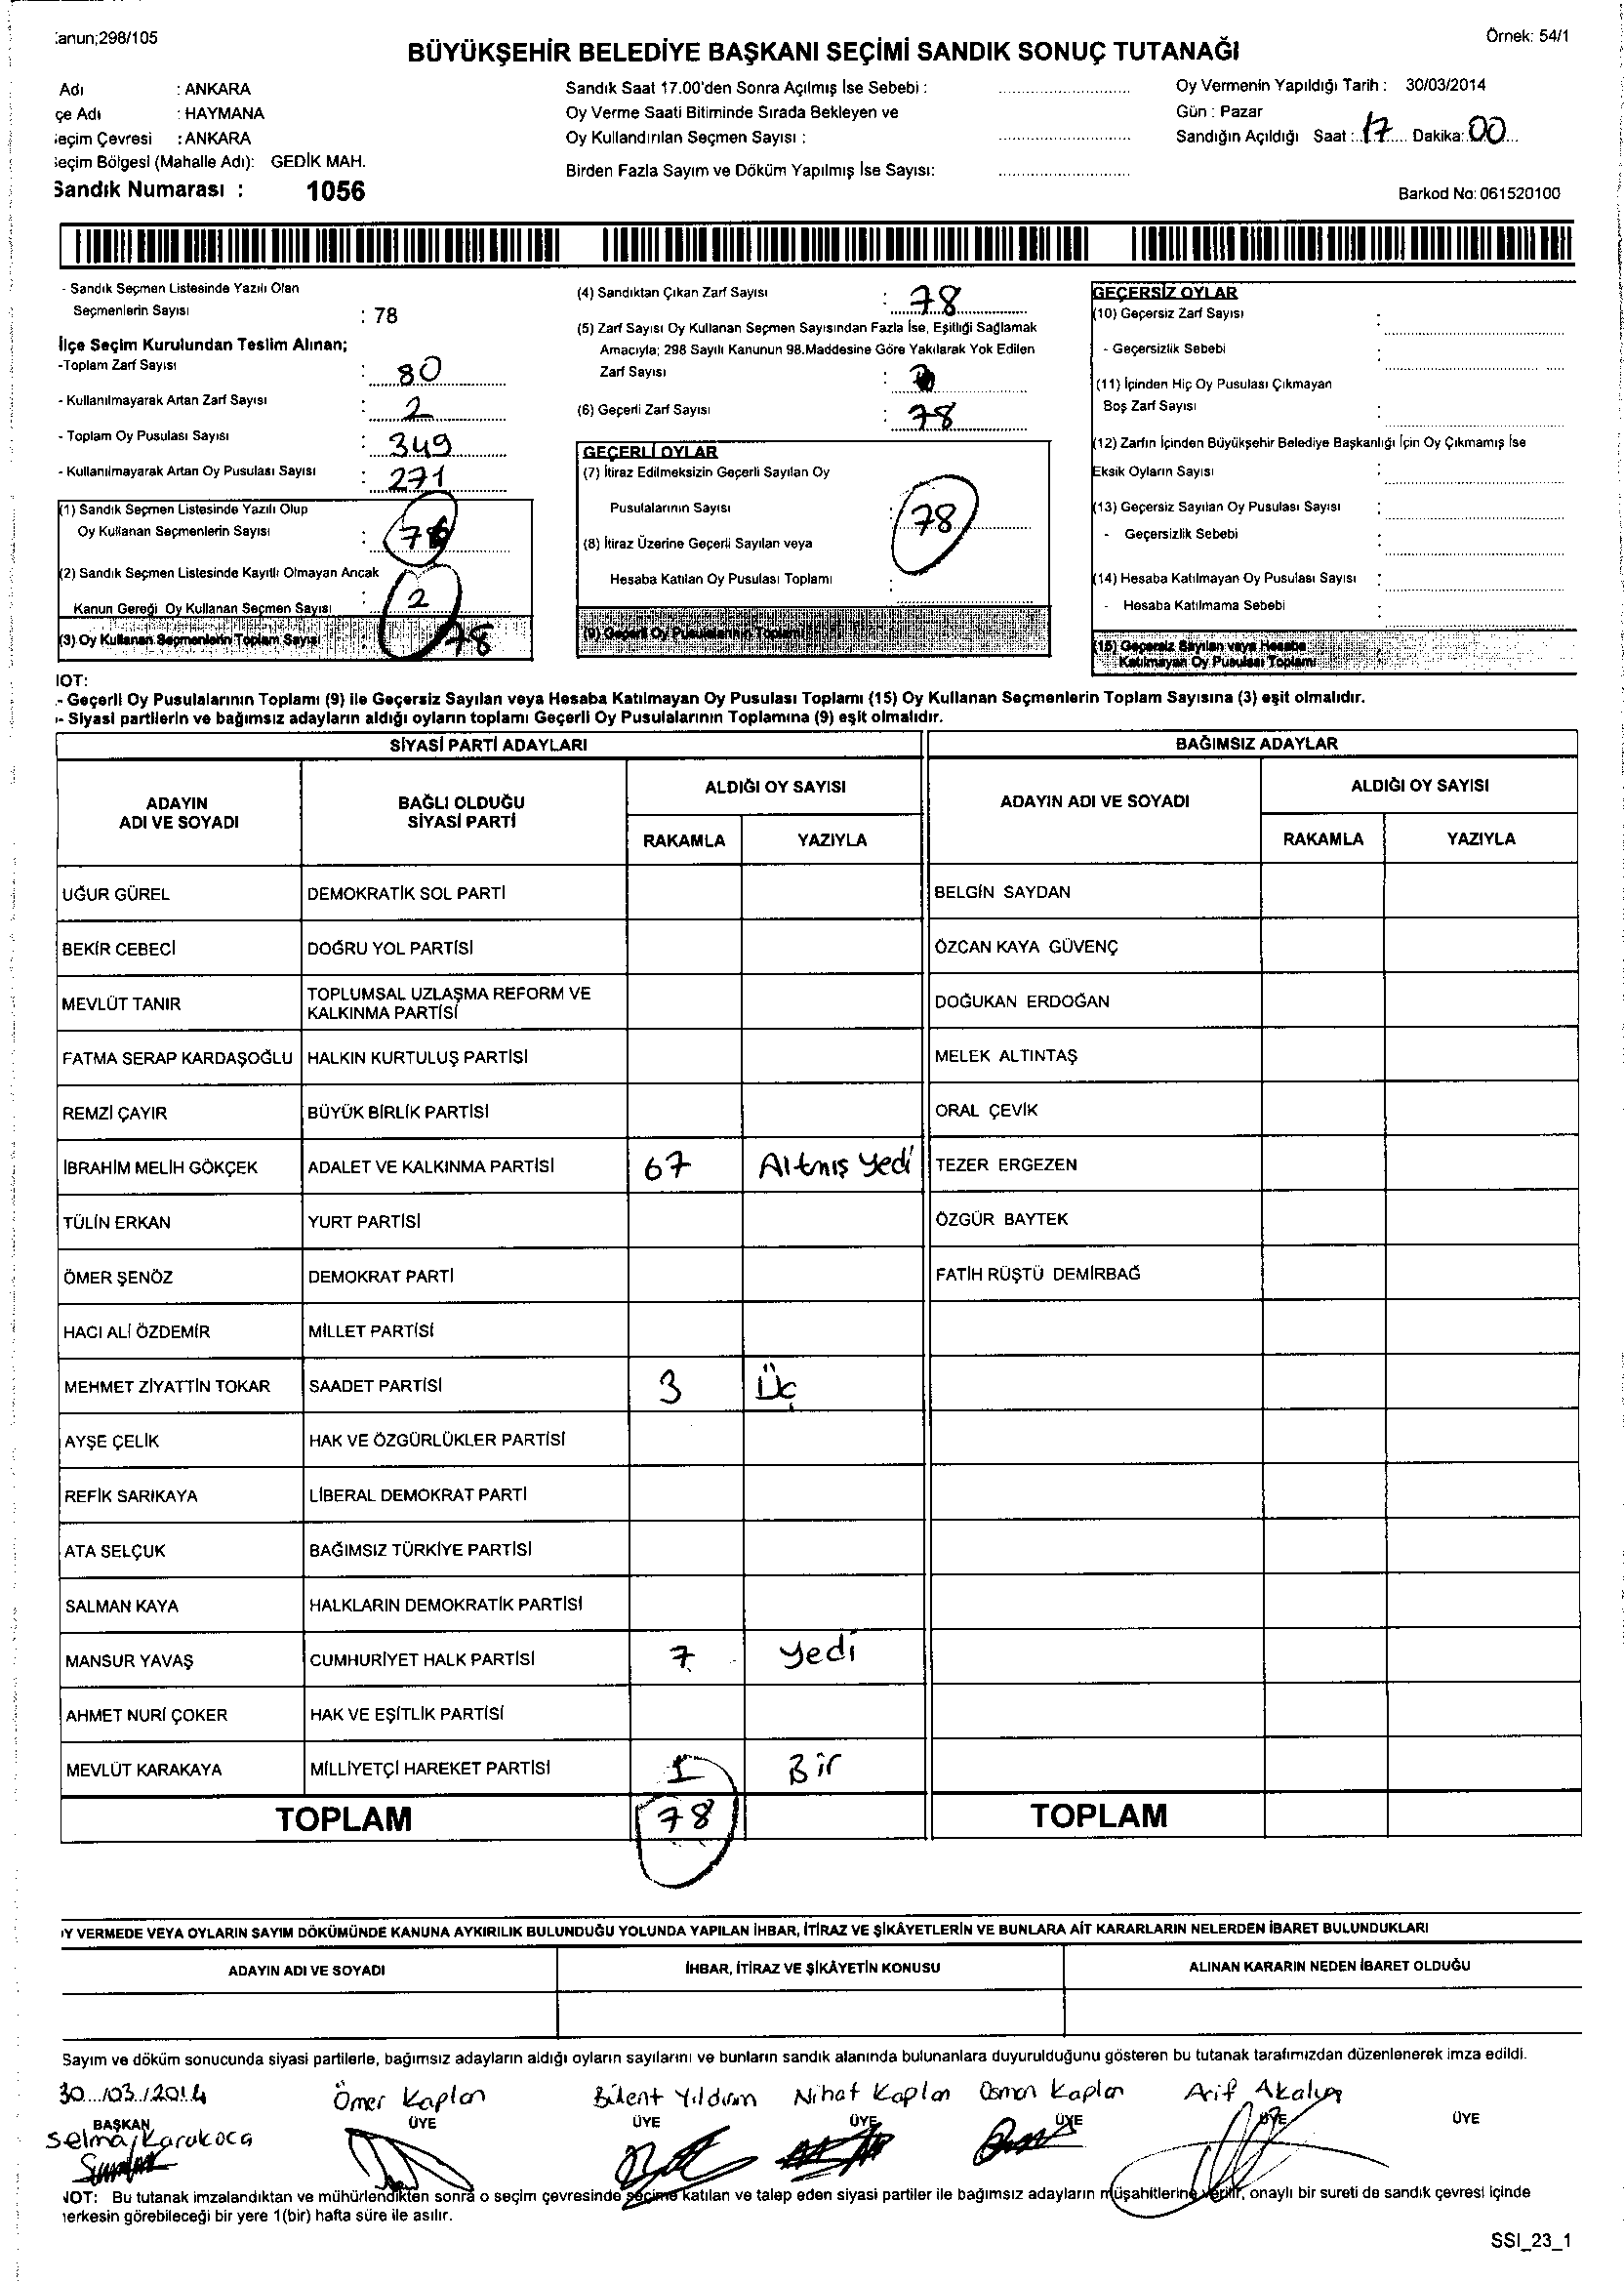 anun;298/105
Örnek: 54/1
BÜYÜKŞEHİR BELEDİYE BAŞKANI SEÇİMİ SANDIK SONUÇ TUTANAĞI
Adı : ANKARA
çe Adı : HAYMANA
eçim Çevresi : ANKARA
eçim Bölgesi (Mahalle Adı): GEDİK MAH.
Sandık Numarası : 1056
Sandık Saat 17.00'den Sonra Açılmış İse Sebebi :
Oy Verme Saati Bitiminde Sırada Bekleyen ve
Oy Kullandırılan Seçmen Sayısı :
Birden Fazla Sayım ve Döküm Yapılmış İse Sayısı:
Oy Vermenin Yapıldığı Tarih : 30/03/2014
Gün : Pazar
Sandığın Açıldığı Saat : 17 Dakika: 00
Barkod No: 061520100
- Sandık Seçmen Listesinde Yazılı Olan
Seçmenlerin Sayısı : 78
İlçe Seçim Kurulundan Teslim Alınan;
-Toplam Zarf Sayısı : 80
- Kullanılmayarak Artan Zarf Sayısı : 2
- Toplam Oy Pusulası Sayısı : 349
- Kullanılmayarak Artan Oy Pusulası Sayısı : 271
(1) Sandık Seçmen Listesinde Yazılı Olup
Oy Kullanan Seçmenlerin Sayısı : 76
(2) Sandık Seçmen Listesinde Kayıtlı Olmayan Ancak
Kanun Gereği Oy Kullanan Seçmen Sayısı : 2
(3) Oy Kullanan Seçmenlerin Toplam Sayısı : 78
(4) Sandıktan Çıkan Zarf Sayısı : 78
(5) Zarf Sayısı Oy Kullanan Seçmen Sayısından Fazla İse, Eşitliği Sağlamak
Amacıyla; 298 Sayılı Kanunun 98.Maddesine Göre Yakılarak Yok Edilen
Zarf Sayısı :
(6) Geçerli Zarf Sayısı : 78
GEÇERLİ OYLAR
(7) İtiraz Edilmeksizin Geçerli Sayılan Oy
Pusulalarının Sayısı : 78
(8) İtiraz Üzerine Geçerli Sayılan veya
Hesaba Katılan Oy Pusulası Toplamı :
(9) Geçerli Oy Pusulalarının Toplamı
GEÇERSİZ OYLAR
(10) Geçersiz Zarf Sayısı :
- Geçersizlik Sebebi :
(11) İçinden Hiç Oy Pusulası Çıkmayan
Boş Zarf Sayısı :
(12) Zarfın İçinden Büyükşehir Belediye Başkanlığı İçin Oy Çıkmamış İse
Eksik Oyların Sayısı :
(13) Geçersiz Sayılan Oy Pusulası Sayısı :
- Geçersizlik Sebebi :
(14) Hesaba Katılmayan Oy Pusulası Sayısı :
- Hesaba Katılmama Sebebi :
(15) Geçersiz Sayılan veya Hesaba
Katılmayan Oy Pusulası Toplamı
NOT:
- Geçerli Oy Pusulalarının Toplamı (9) ile Geçersiz Sayılan veya Hesaba Katılmayan Oy Pusulası Toplamı (15) Oy Kullanan Seçmenlerin Toplam Sayısına (3) eşit olmalıdır.
- Siyasi partilerin ve bağımsız adayların aldığı oyların toplamı Geçerli Oy Pusulalarının Toplamına (9) eşit olmalıdır.
SİYASİ PARTİ ADAYLARI BAĞIMSIZ ADAYLAR
ADAYIN ADI VE SOYADI BAĞLI OLDUĞU SİYASİ PARTİ ALDIĞI OY SAYISI ADAYIN ADI VE SOYADI ALDIĞI OY SAYISI
RAKAMLA YAZIYLA RAKAMLA YAZIYLA
UĞUR GÜREL DEMOKRATİK SOL PARTİ BELGİN SAYDAN
BEKİR CEBECİ DOĞRU YOL PARTİSİ ÖZCAN KAYA GÜVENÇ
MEVLÜT TANIR TOPLUMSAL UZLAŞMA REFORM VE KALKINMA PARTİSİ DOĞUKAN ERDOĞAN
FATMA SERAP KARDAŞOĞLU HALKIN KURTULUŞ PARTİSİ MELEK ALTINTAŞ
REMZİ ÇAYIR BÜYÜK BİRLİK PARTİSİ ORAL ÇEVİK
İBRAHİM MELİH GÖKÇEK ADALET VE KALKINMA PARTİSİ 67 Altmış Yedi TEZER ERGEZEN
TÜLİN ERKAN YURT PARTİSİ ÖZGÜR BAYTEK
ÖMER ŞENÖZ DEMOKRAT PARTİ FATİH RÜŞTÜ DEMİRBAĞ
HACI ALİ ÖZDEMİR MİLLET PARTİSİ
MEHMET ZİYATTİN TOKAR SAADET PARTİSİ 3 Üç
AYŞE ÇELİK HAK VE ÖZGÜRLÜKLER PARTİSİ
REFİK SARIKAYA LİBERAL DEMOKRAT PARTİ
ATA SELÇUK BAĞIMSIZ TÜRKİYE PARTİSİ
SALMAN KAYA HALKLARIN DEMOKRATİK PARTİSİ
MANSUR YAVAŞ CUMHURİYET HALK PARTİSİ 7 Yedi
AHMET NURİ ÇOKER HAK VE EŞİTLİK PARTİSİ
MEVLÜT KARAKAYA MİLLİYETÇİ HAREKET PARTİSİ 1 Bir
TOPLAM 78 TOPLAM
Y VERMEDE VEYA OYLARIN SAYIM DÖKÜMÜNDE KANUNA AYKIRILIK BULUNDUĞU YOLUNDA YAPILAN İHBAR, İTİRAZ VE ŞİKÂYETLERİN VE BUNLARA AİT KARARLARIN NELERDEN İBARET BULUNDUKLARI
ADAYIN ADI VE SOYADI İHBAR, İTİRAZ VE ŞİKÂYETİN KONUSU ALINAN KARARIN NEDEN İBARET OLDUĞU
Sayım ve döküm sonucunda siyasi partilerle, bağımsız adayların aldığı oyların sayılarını ve bunların sandık alanında bulunanlara duyurulduğunu gösteren bu tutanak tarafımızdan düzenlenerek imza edildi.
30/03/2014 Ömer Kaplan Bülent Yıldırım Nihat Kaplan Osman Kaplan Arif Akalın
BAŞKAN ÜYE ÜYE ÜYE ÜYE ÜYE ÜYE
Selma Karakoca
NOT: Bu tutanak imzalandıktan ve mühürlendikten sonra o seçim çevresinde seçime katılan ve talep eden siyasi partiler ile bağımsız adayların müşahitlerine verilir, onaylı bir sureti de sandık çevresi içinde
herkesin görebileceği bir yere 1(bir) hafta süre ile asılır.
SSI_23_1